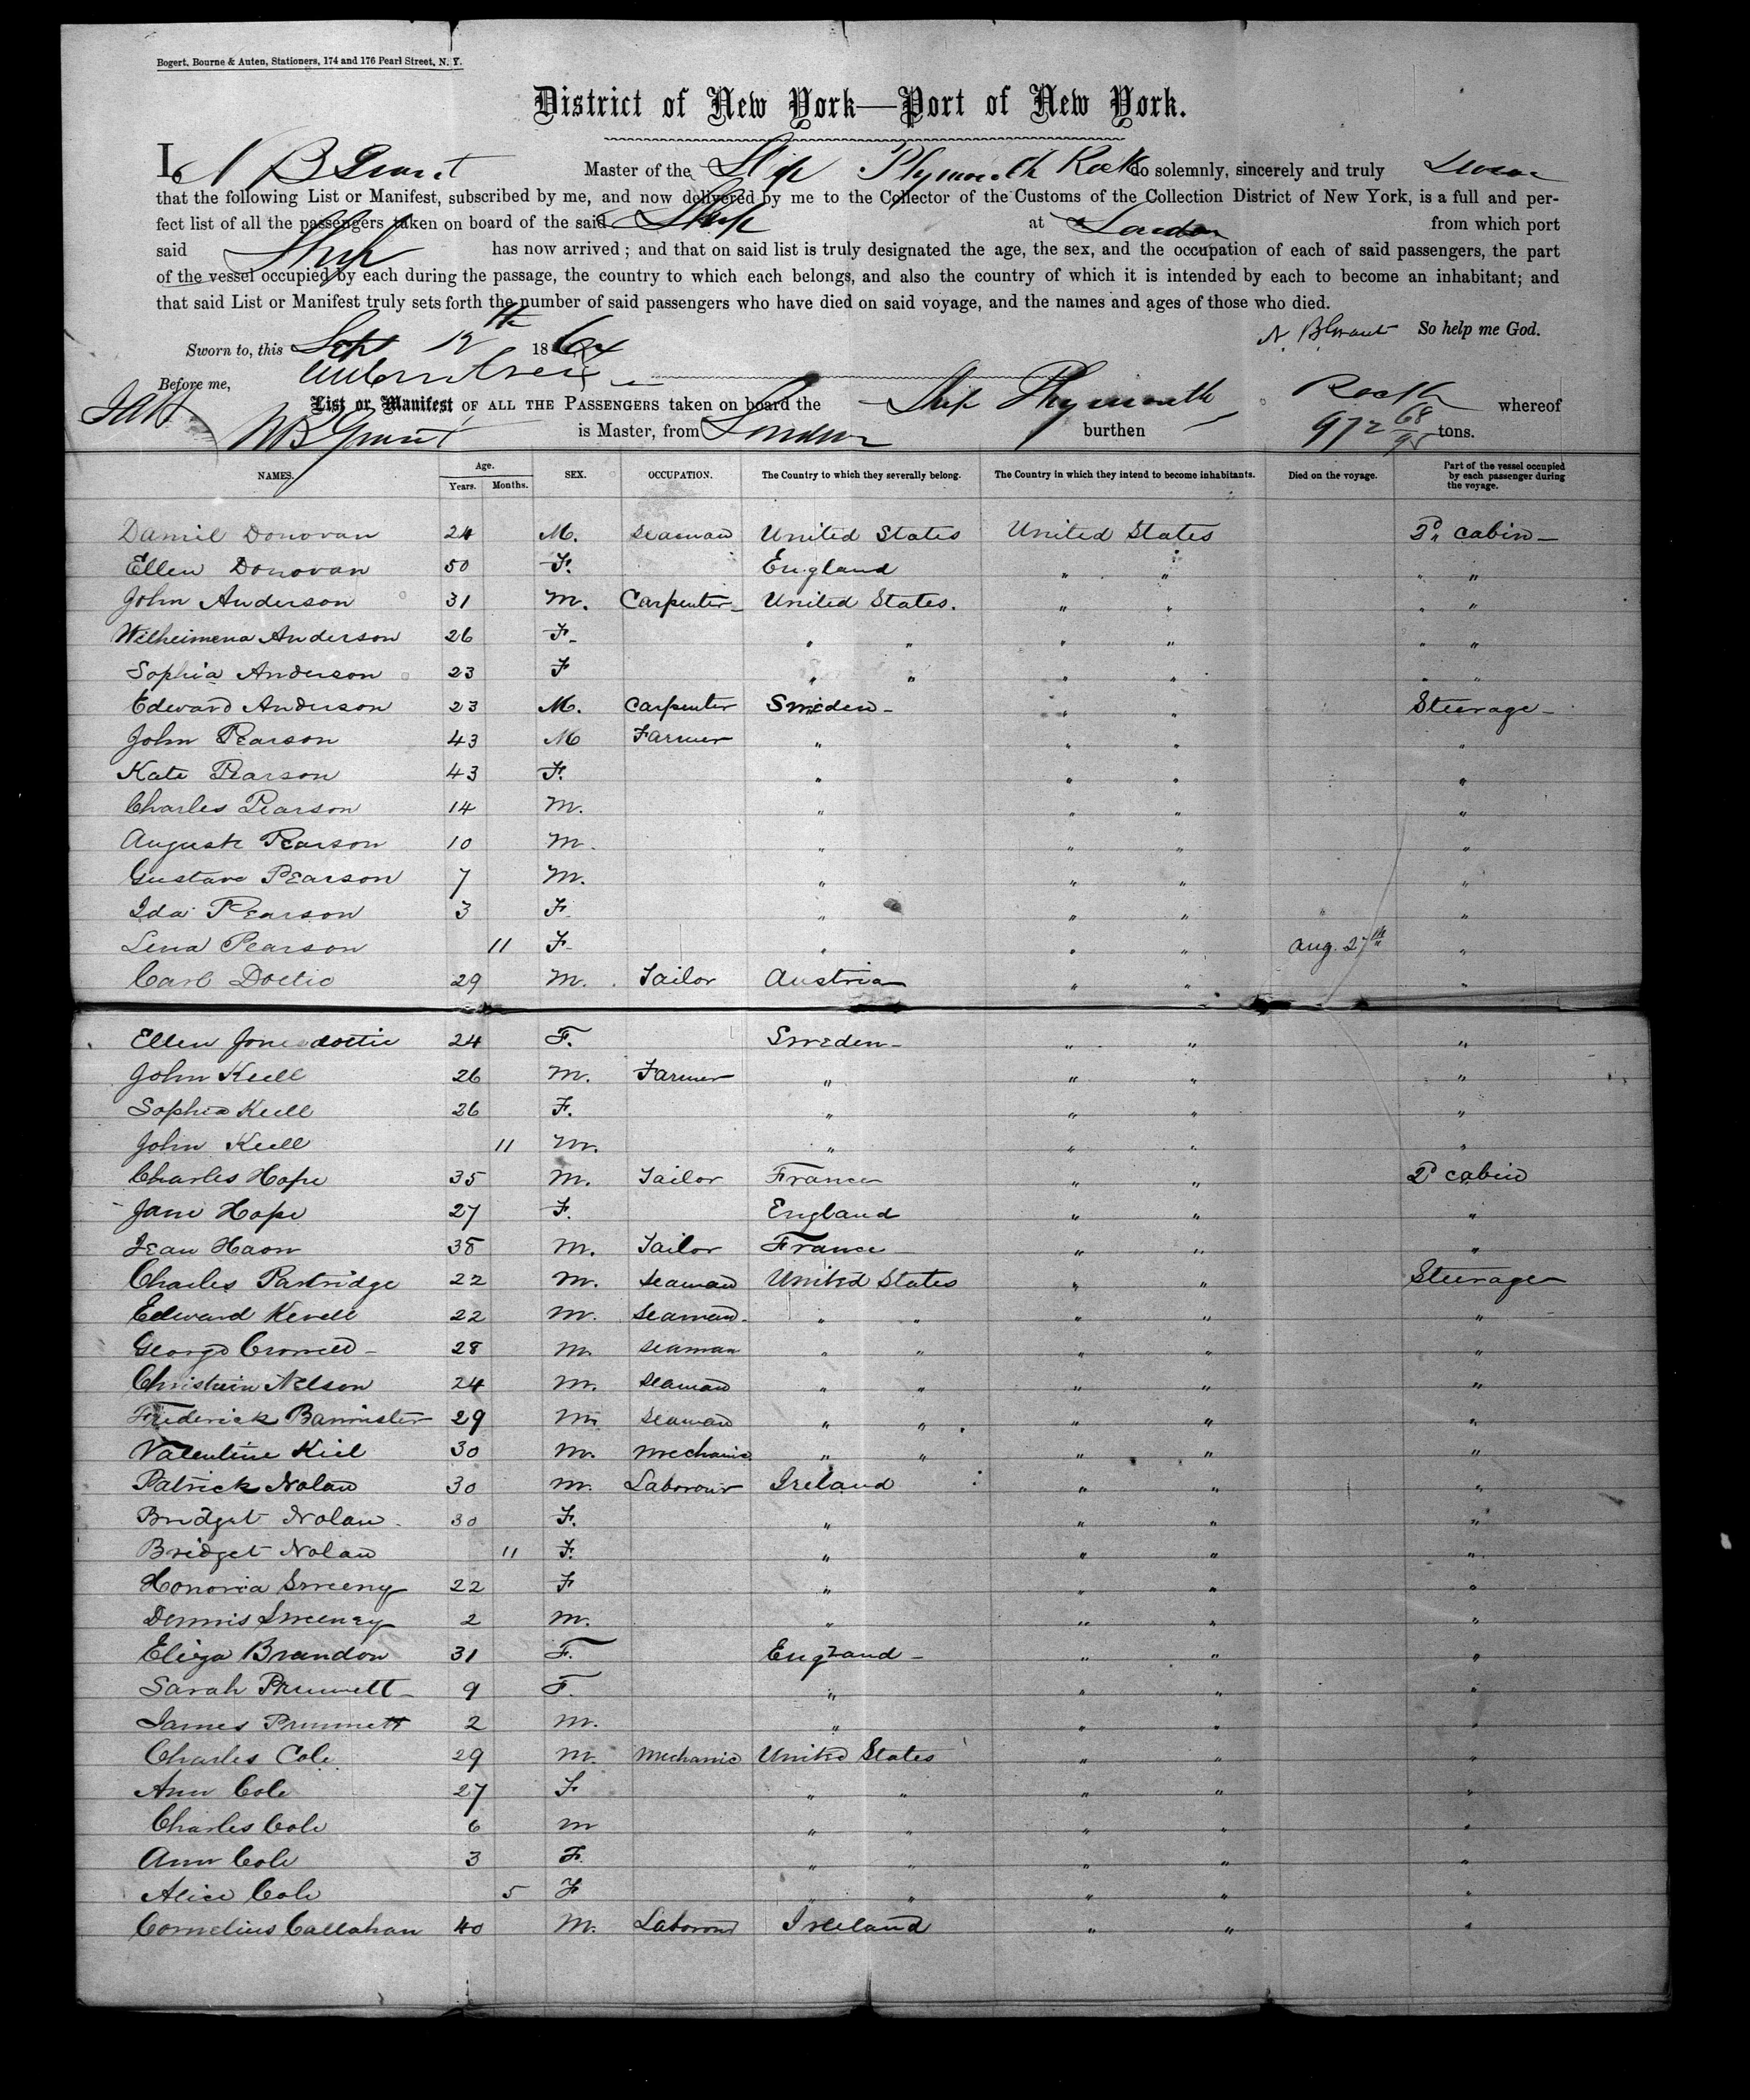 Bogert, Bourne & Auten, Stationers, 174 and 176 Pearl Street, N. Y.
District of New York—Port of New York.
I, N B Grant Master of the Ship Plymouth Rock do solemnly, sincerely and truly Swear
that the following List or Manifest, subscribed by me, and now delivered by me to the Collector of the Customs of the Collection District of New York, is a full and per-
fect list of all the passengers taken on board of the said Ship at London from which port
said Ship has now arrived; and that on said list is truly designated the age, the sex, and the occupation of each of said passengers, the part
of the vessel occupied by each during the passage, the country to which each belongs, and also the country of which it is intended by each to become an inhabitant; and
that said List or Manifest truly sets forth the number of said passengers who have died on said voyage, and the names and ages of those who died.
N. B Grant So help me God.
Sworn to, this Sept 12th 1864
Before me,
List or Manifest OF ALL THE PASSENGERS taken on board the Ship Plymouth Rock whereof
N B Grant is Master, from London burthen 972 68/95 tons.
NAMES. Age. Years. Months. SEX. OCCUPATION. The Country to which they severally belong. The Country in which they intend to become inhabitants. Died on the voyage. Part of the vessel occupied by each passenger during the voyage.
Daniel Donovan 24 M. Seaman United States United States 2d cabin
Ellen Donovan 50 F. England " " " "
John Anderson 31 M. Carpenter United States. " " " "
Wilheimena Anderson 26 F. " " " " " "
Sophia Anderson 23 F " " " " " "
Edward Anderson 23 M. Carpenter Sweden " " Steerage
John Pearson 43 M Farmer " " " "
Kate Pearson 43 F. " " " "
Charles Pearson 14 M. " " " "
August Pearson 10 M. " " " "
Gustave Pearson 7 M. " " " "
Ida Pearson 3 F. " " " " "
Lena Pearson 11 F. " " " Aug. 27th "
Carl 29 M. Tailor Austria " " "
Ellen 24 F. Sweden " " "
John Kull 26 M. Farmer " " " "
Sophia Kull 26 F. " " " "
John Kull 11 M. " " " "
Charles Hope 35 M. Tailor France " " 2d cabin
Jane Hope 27 F. England " " "
Jean Haon 38 M. Tailor France " " "
Charles Partridge 22 M. Seaman United States " " Steerage
Edward Kevell 22 M. Seaman " " " " "
George 28 M. Seaman " " " " "
Christein Nelson 24 M. Seaman " " " " "
Frederick Bannister 29 M. Seaman " " " " "
Valentine Kiel 30 M. Mechanic " " " " "
Patrick Nolan 30 M. Labourer Ireland " " "
Bridget Nolan 30 F. " " " "
Bridget Nolan 11 F. " " " "
Honoria Sweeny 22 F " " " "
Dennis Sweeney 2 M. " " " "
Eliza Brandon 31 F. England " " "
Sarah Prumett 9 F. " " " "
James Prumett 2 M. " " " "
Charles Cole 29 M. Mechanic United States " " "
Ann Cole 27 F " " " " "
Charles Cole 6 M " " " " "
Ann Cole 3 F. " " " " "
Alice Cole 5 F " " " " "
Cornelius Callahan 40 M. Labourer Ireland " " "